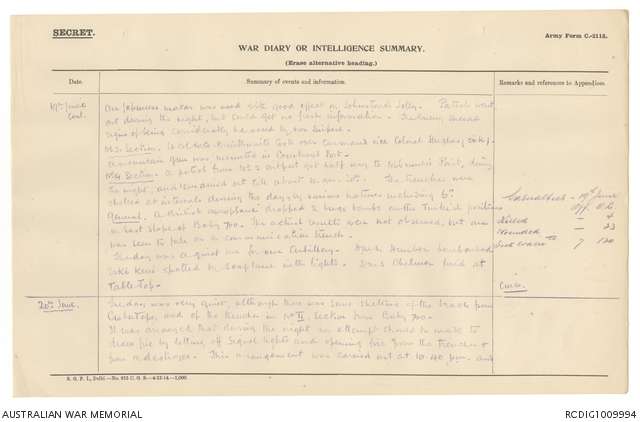 SECRET.
Army Form C.-2118.
WAR DIARY OR INTELLIGENCE SUMMARY.
(Erase alternative heading.)
Date.
Summary of events and information.
Remarks and references to Appendices
19th June
cont.
Our Japanese mortar was used with good effect on Johnston's Jolly. Patrols went
out during the night, but could get no fresh information. Turkish
signs of being considerably harassed by our snipers.
No 3 Section. Lt Col. took over command vice Colonel Hughes, sick;
a mountain gun was mounted in Courtney's Post.
No 4 Section. A patrol from No 2 outpost got half way to Point, during
the night, and remained out till about The trenches were
shelled at intervals during the day by various natures including 6".
General. A British aeroplane dropped 2 huge bombs on the Turkish positions
on East slope of Baby 700. The actual results were not observed, but one
was seen to fall on a communication trench.
The day was a quiet one for our Artillery. bombarded
spotted by seaplane with lights. fired at
Table-top.
Casualties - 19th June
Off. O.R.
Killed - 4
Wounded - 23
Sick evac'd 7 120
20th June.
The day was very quiet, although there was some shelling of the beach from
and of the trenches in No II Section from Baby 700.
It was arranged that during the night an attempt should be made to
draw fire by letting off signal lights and opening fire from the trenches &
from a destroyer. This arrangement was carried out at 10.40 pm. and
S. G. P. I., Delhi.
AUSTRALIAN WAR MEMORIAL
RCDIG1009994